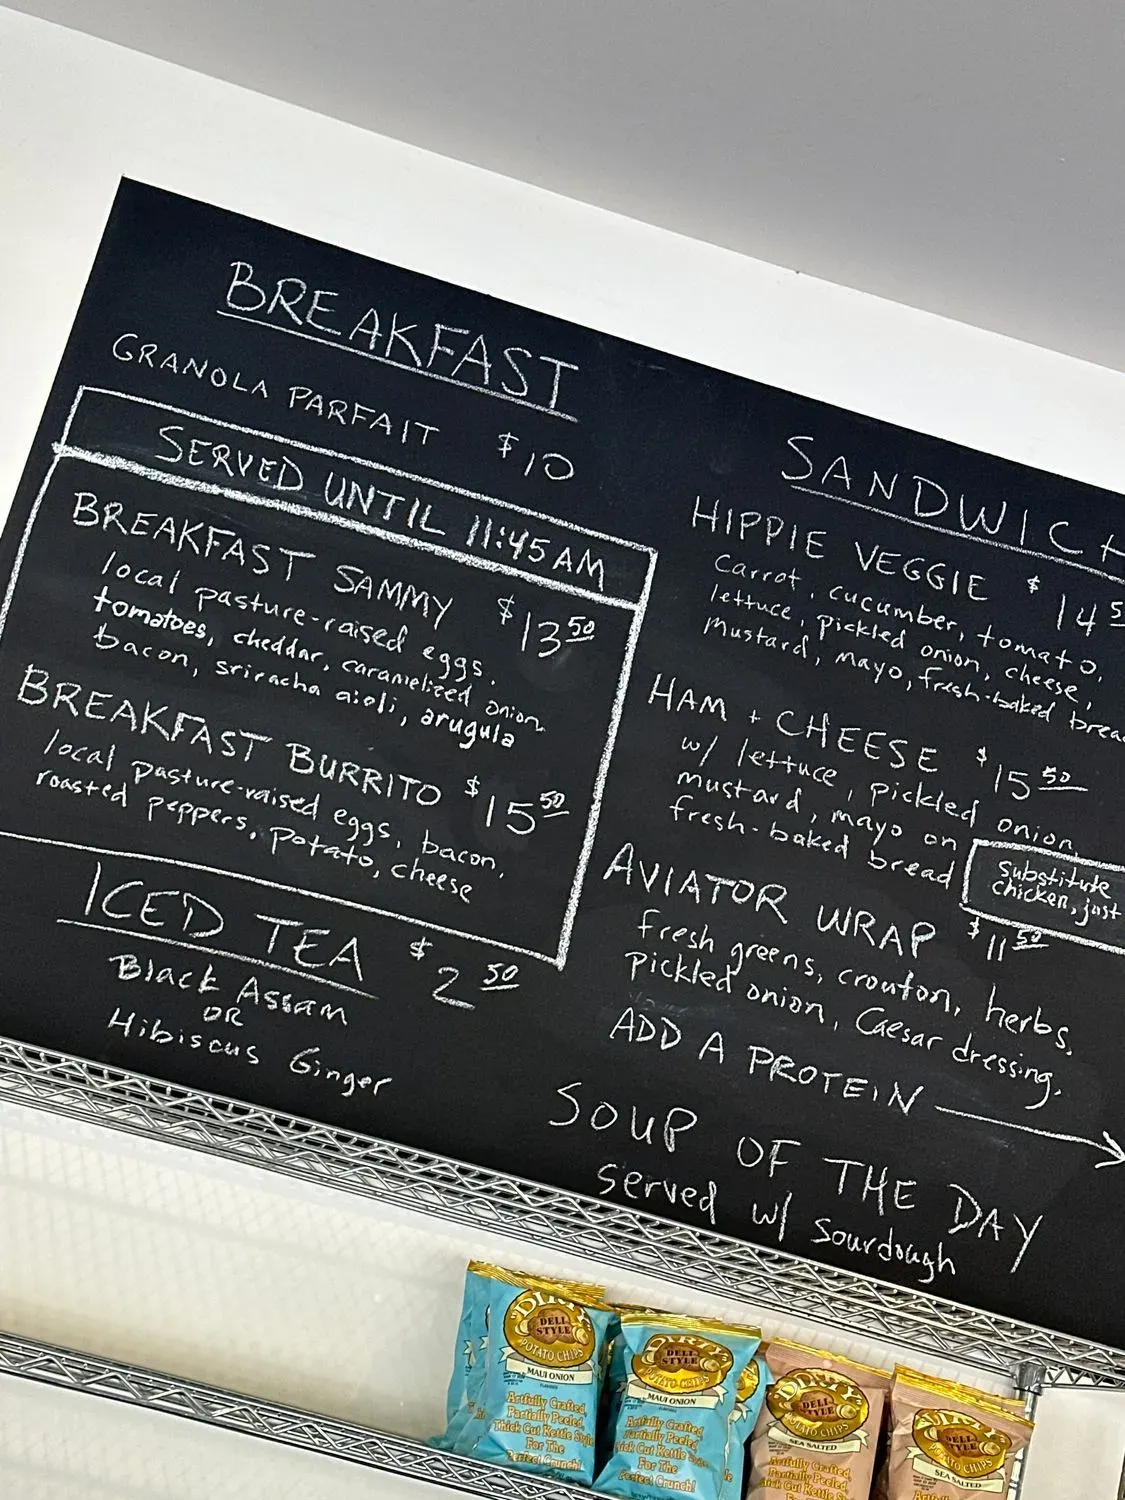 BREAKFAST
GRANOLA PARFAIT $10
SERVED UNTIL 11:45 AM
BREAKFAST SAMMY $13.50
local pasture-raised eggs,
tomatoes, cheddar, caramelized onion,
bacon, sriracha aioli, arugula
BREAKFAST BURRITO $15.50
local pasture-raised eggs, bacon,
roasted peppers, potato, cheese
ICED TEA $2.50
Black Assam
OR
Hibiscus Ginger
SANDWICH
HIPPIE VEGGIE $14.5
Carrot, cucumber, tomato,
lettuce, pickled onion, cheese,
mustard, mayo, fresh-baked bread
HAM + CHEESE $15.50
w/ lettuce, pickled onion,
mustard, mayo on
fresh-baked bread
Substitute
chicken, just
AVIATOR WRAP $11.50
fresh greens, crouton, herbs,
pickled onion, Caesar dressing,
ADD A PROTEIN
SOUP OF THE DAY
served w/ sourdough
"DIRTY"
DELI
STYLE
POTATO CHIPS
MAUI ONION
Artfully Crafted,
Partially Peeled,
Thick Cut Kettle Style
For The
Perfect Crunch!
"DIRTY"
DELI
STYLE
POTATO CHIPS
MAUI ONION
Artfully Crafted
Partially Peeled,
Thick Cut Kettle
For The
Perfect Crunch!
"DIRTY"
DELI
STYLE
POTATO CHIPS
SEA SALTED
Artfully Crafted,
Partially Peeled,
Thick Cut Kettle Style
"DIRTY"
DELI
STYLE
POTATO CHIPS
SEA SALTED